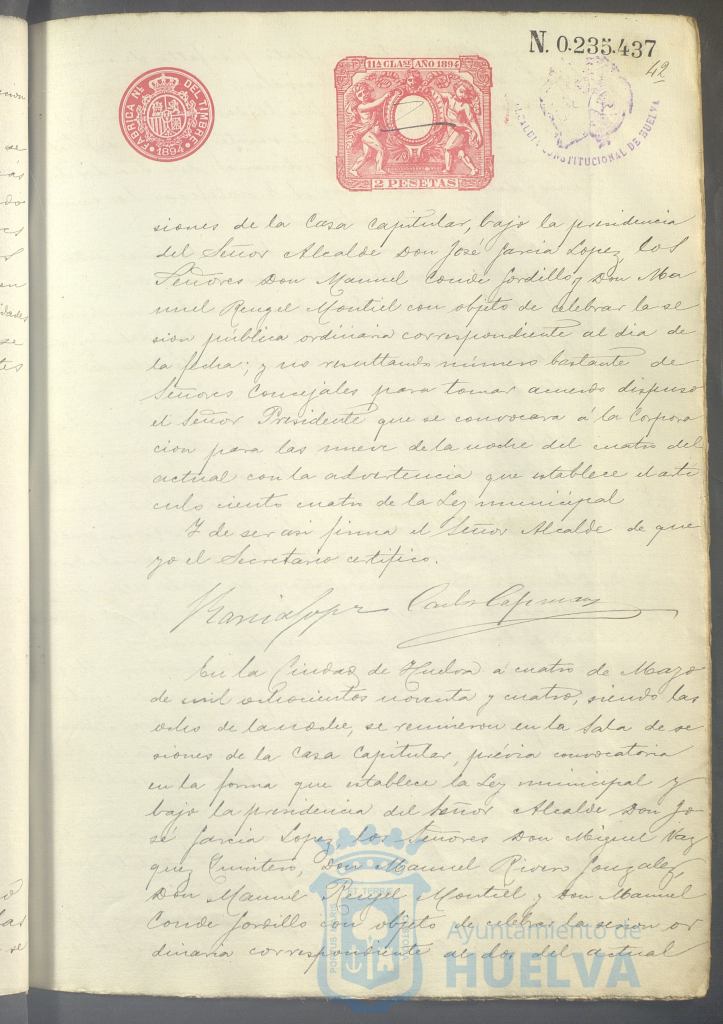 N. 0.235.437
42
FABRICA NL. DEL TIMBRE
1894
11A CLASE AÑO 1894
2 PESETAS
ALCALDIA CONSTITUCIONAL DE HUELVA
siones de la Casa Capitular, bajo la presidencia
del Señor Alcalde Don José Garcia Lopez, los
Señores Don Manuel Conde Gordillo y Don Ma
nuel Rengel Montiel con objeto de celebrar la se
sion pública ordinaria correspondiente al dia de
la fecha; y no resultando número bastante de
Señores Concejales para tomar acuerdo dispuso
el Señor Presidente que se convocara á la Corpora
cion para las nueve de la noche del cuatro del
actual con la advertencia que establece el arti
culo ciento cuatro de la Ley municipal
Y de ser asi firma el Señor Alcalde de que
yo el Secretario certifico.
Garcia Lopez
En la Ciudad de Huelva á cuatro de Mayo
de mil ochocientos noventa y cuatro, siendo las
ocho de la noche, se reunieron en la Sala de se
siones de la Casa Capitular, prévia convocatoria
en la forma que establece la Ley municipal y
bajo la presidencia del Señor Alcalde Don Jo
sé Garcia Lopez, los Señores Don Miguel Vaz
quez Quintero, Don Manuel Rivero Gonzalez,
Don Manuel Rengel Montiel y Don Manuel
Conde Gordillo con objeto de celebrar la sesion or
dinaria correspondiente al dos del actual
PORTUS MARIS ET TERRÆ CUSTODIA
Ayuntamiento de
HUELVA